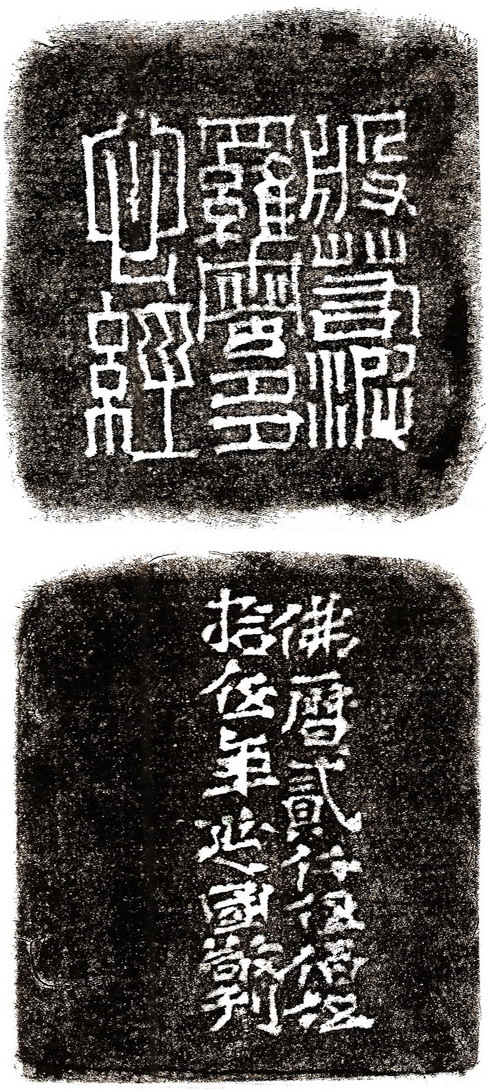 般若波
羅蜜多
心經
佛曆貳仟伍佰伍
拾伍年延國敬刊